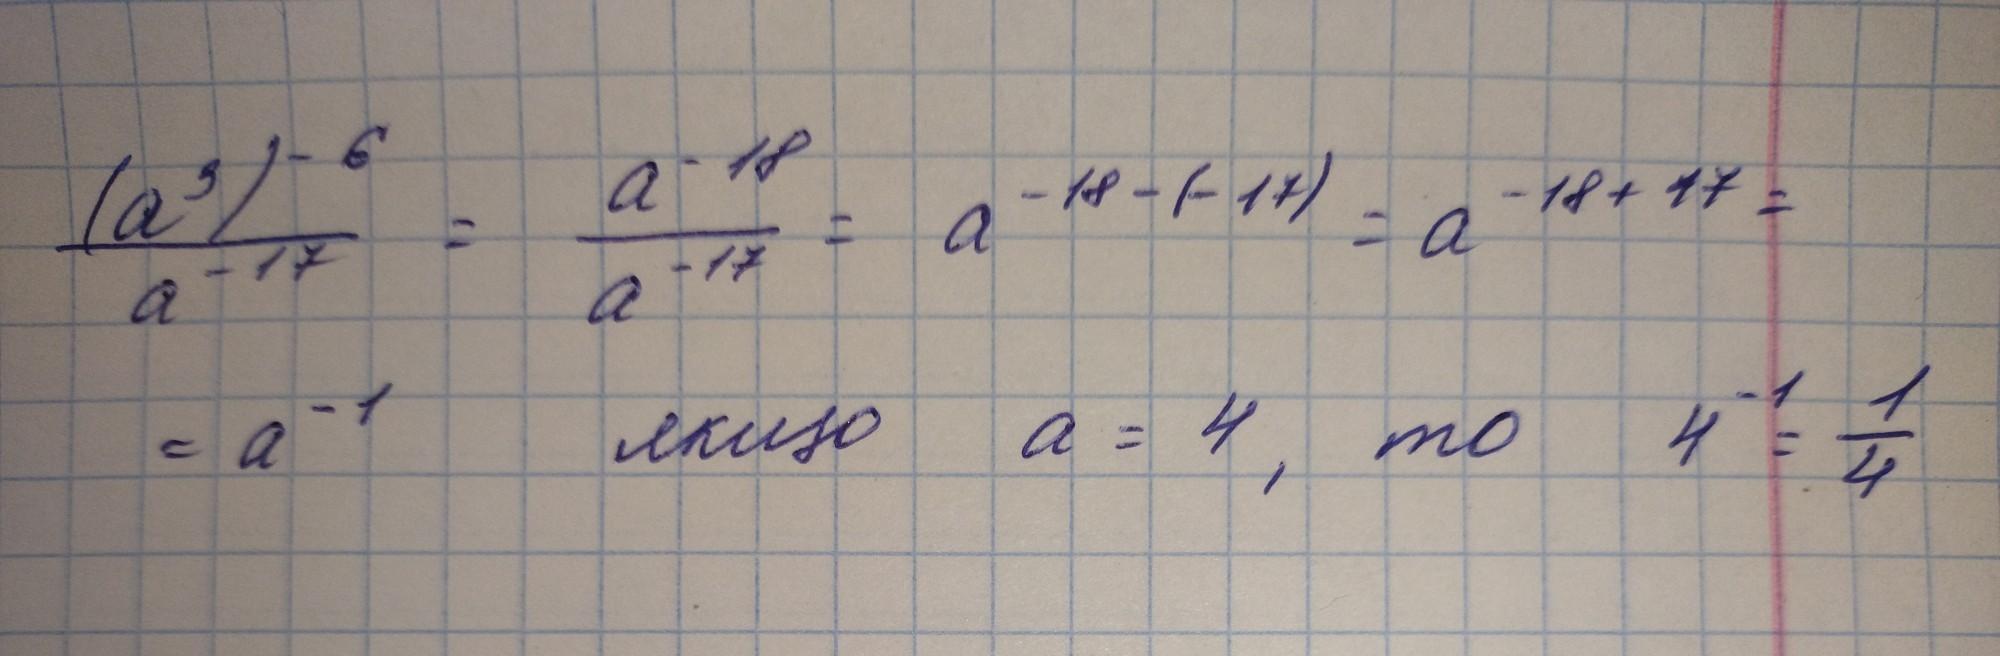 (a³)⁻⁶ / a⁻¹⁷ = a⁻¹⁸ / a⁻¹⁷ = a⁻¹⁸⁻⁽⁻¹⁷⁾ = a⁻¹⁸⁺¹⁷ =
= a⁻¹ якщо a = 4, то 4⁻¹ = 1/4